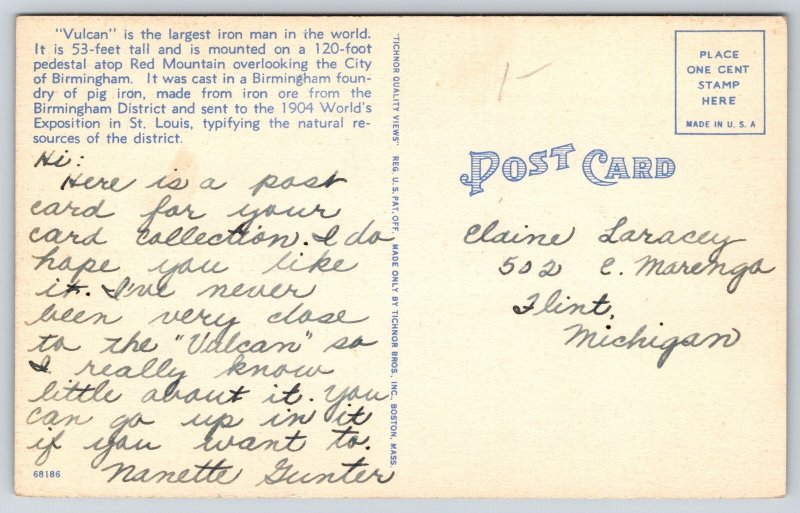 "Vulcan" is the largest iron man in the world.
It is 53-feet tall and is mounted on a 120-foot
pedestal atop Red Mountain overlooking the City
of Birmingham. It was cast in a Birmingham foun-
dry of pig iron, made from iron ore from the
Birmingham District and sent to the 1904 World's
Exposition in St. Louis, typifying the natural re-
sources of the district.
Hi:
Here is a post
card for your
card collection. I do
hope you like
it. I've never
been very close
to the "Vulcan" so
I really know
little about it. You
can go up in it
if you want to.
Nanette Gunter
68186
"TICHNOR QUALITY VIEWS" REG. U.S. PAT. OFF. MADE ONLY BY TICHNOR BROS. INC., BOSTON, MASS.
PLACE
ONE CENT
STAMP
HERE
MADE IN U.S.A
POST CARD
Elaine Laracey
502 E. Marengo
Flint,
Michigan